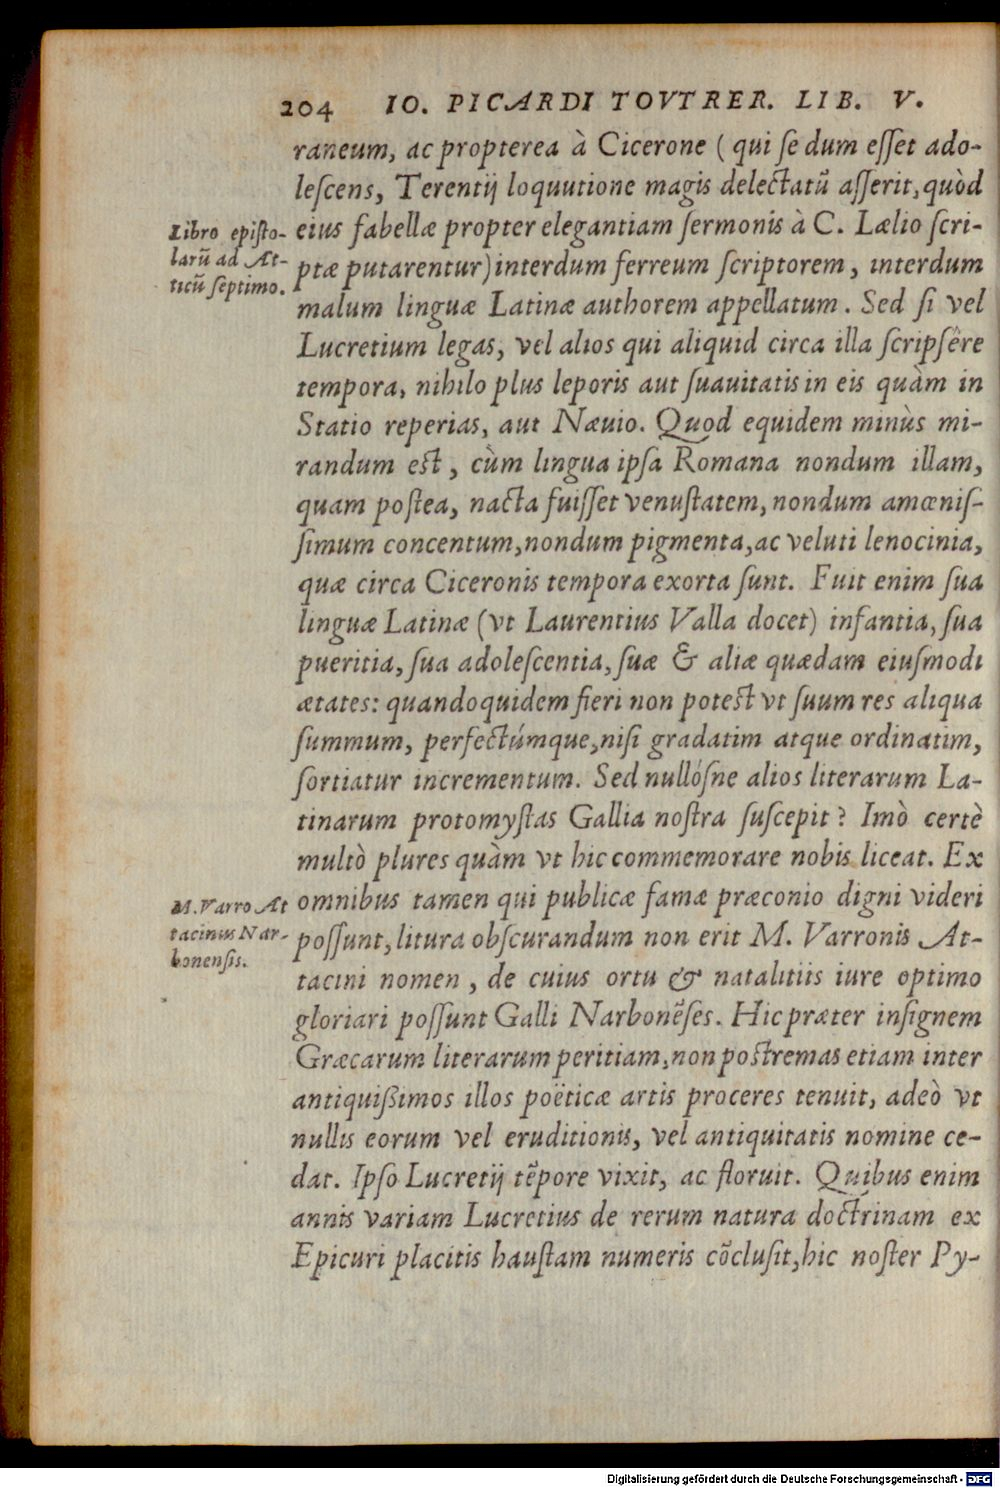 204 IO. PICARDI TOVTRER. LIB. V.
raneum, ac propterea à Cicerone ( qui ſe dum eſſet ado-
leſcens, Terentij loquutione magis delectatũ aſſerit, quòd
eius fabellæ propter elegantiam ſermonis à C. Lælio ſcri-
ptæ putarentur) interdum ferreum ſcriptorem, interdum
malum linguæ Latinæ authorem appellatum. Sed ſi vel
Lucretium legas, vel alios qui aliquid circa illa ſcripſêre
tempora, nihilo plus leporis aut ſuauitatis in eis quàm in
Statio reperias, aut Næuio. Quod equidem minùs mi-
randum est, cùm lingua ipſa Romana nondum illam,
quam poſtea, nacta fuiſſet venuſtatem, nondum amœniſ-
ſimum concentum, nondum pigmenta, ac veluti lenocinia,
quæ circa Ciceronis tempora exorta ſunt. Fuit enim ſua
linguæ Latinæ (vt Laurentius Valla docet) infantia, ſua
pueritia, ſua adoleſcentia, ſuæ & aliæ quædam eiuſmodi
ætates: quandoquidem fieri non potest vt ſuum res aliqua
ſummum, perfectúmque, niſi gradatim atque ordinatim,
ſortiatur incrementum. Sed nullóſne alios literarum La-
tinarum protomyſtas Gallia noſtra ſuſcepit? Imò certè
multò plures quàm vt hic commemorare nobis liceat. Ex
omnibus tamen qui publicæ famæ præconio digni videri
poſſunt, litura obſcurandum non erit M. Varronis At-
tacini nomen, de cuius ortu & natalitiis iure optimo
gloriari poſſunt Galli Narbonẽſes. Hic præter inſignem
Græcarum literarum peritiam, non postremas etiam inter
antiquiſsimos illos poëticæ artis proceres tenuit, adeò vt
nullis eorum vel eruditionis, vel antiquitatis nomine ce-
dat. Ipſo Lucretij tẽpore vixit, ac floruit. Quibus enim
annis variam Lucretius de rerum natura doctrinam ex
Epicuri placitis hauſtam numeris cõcluſit, hic noſter Py-
Libro epiſto-
larũ ad At-
ticũ ſeptimo.
M. Varro At
tacinus Nar-
bonenſis.
Digitalisierung gefördert durch die Deutsche Forschungsgemeinschaft - DFG